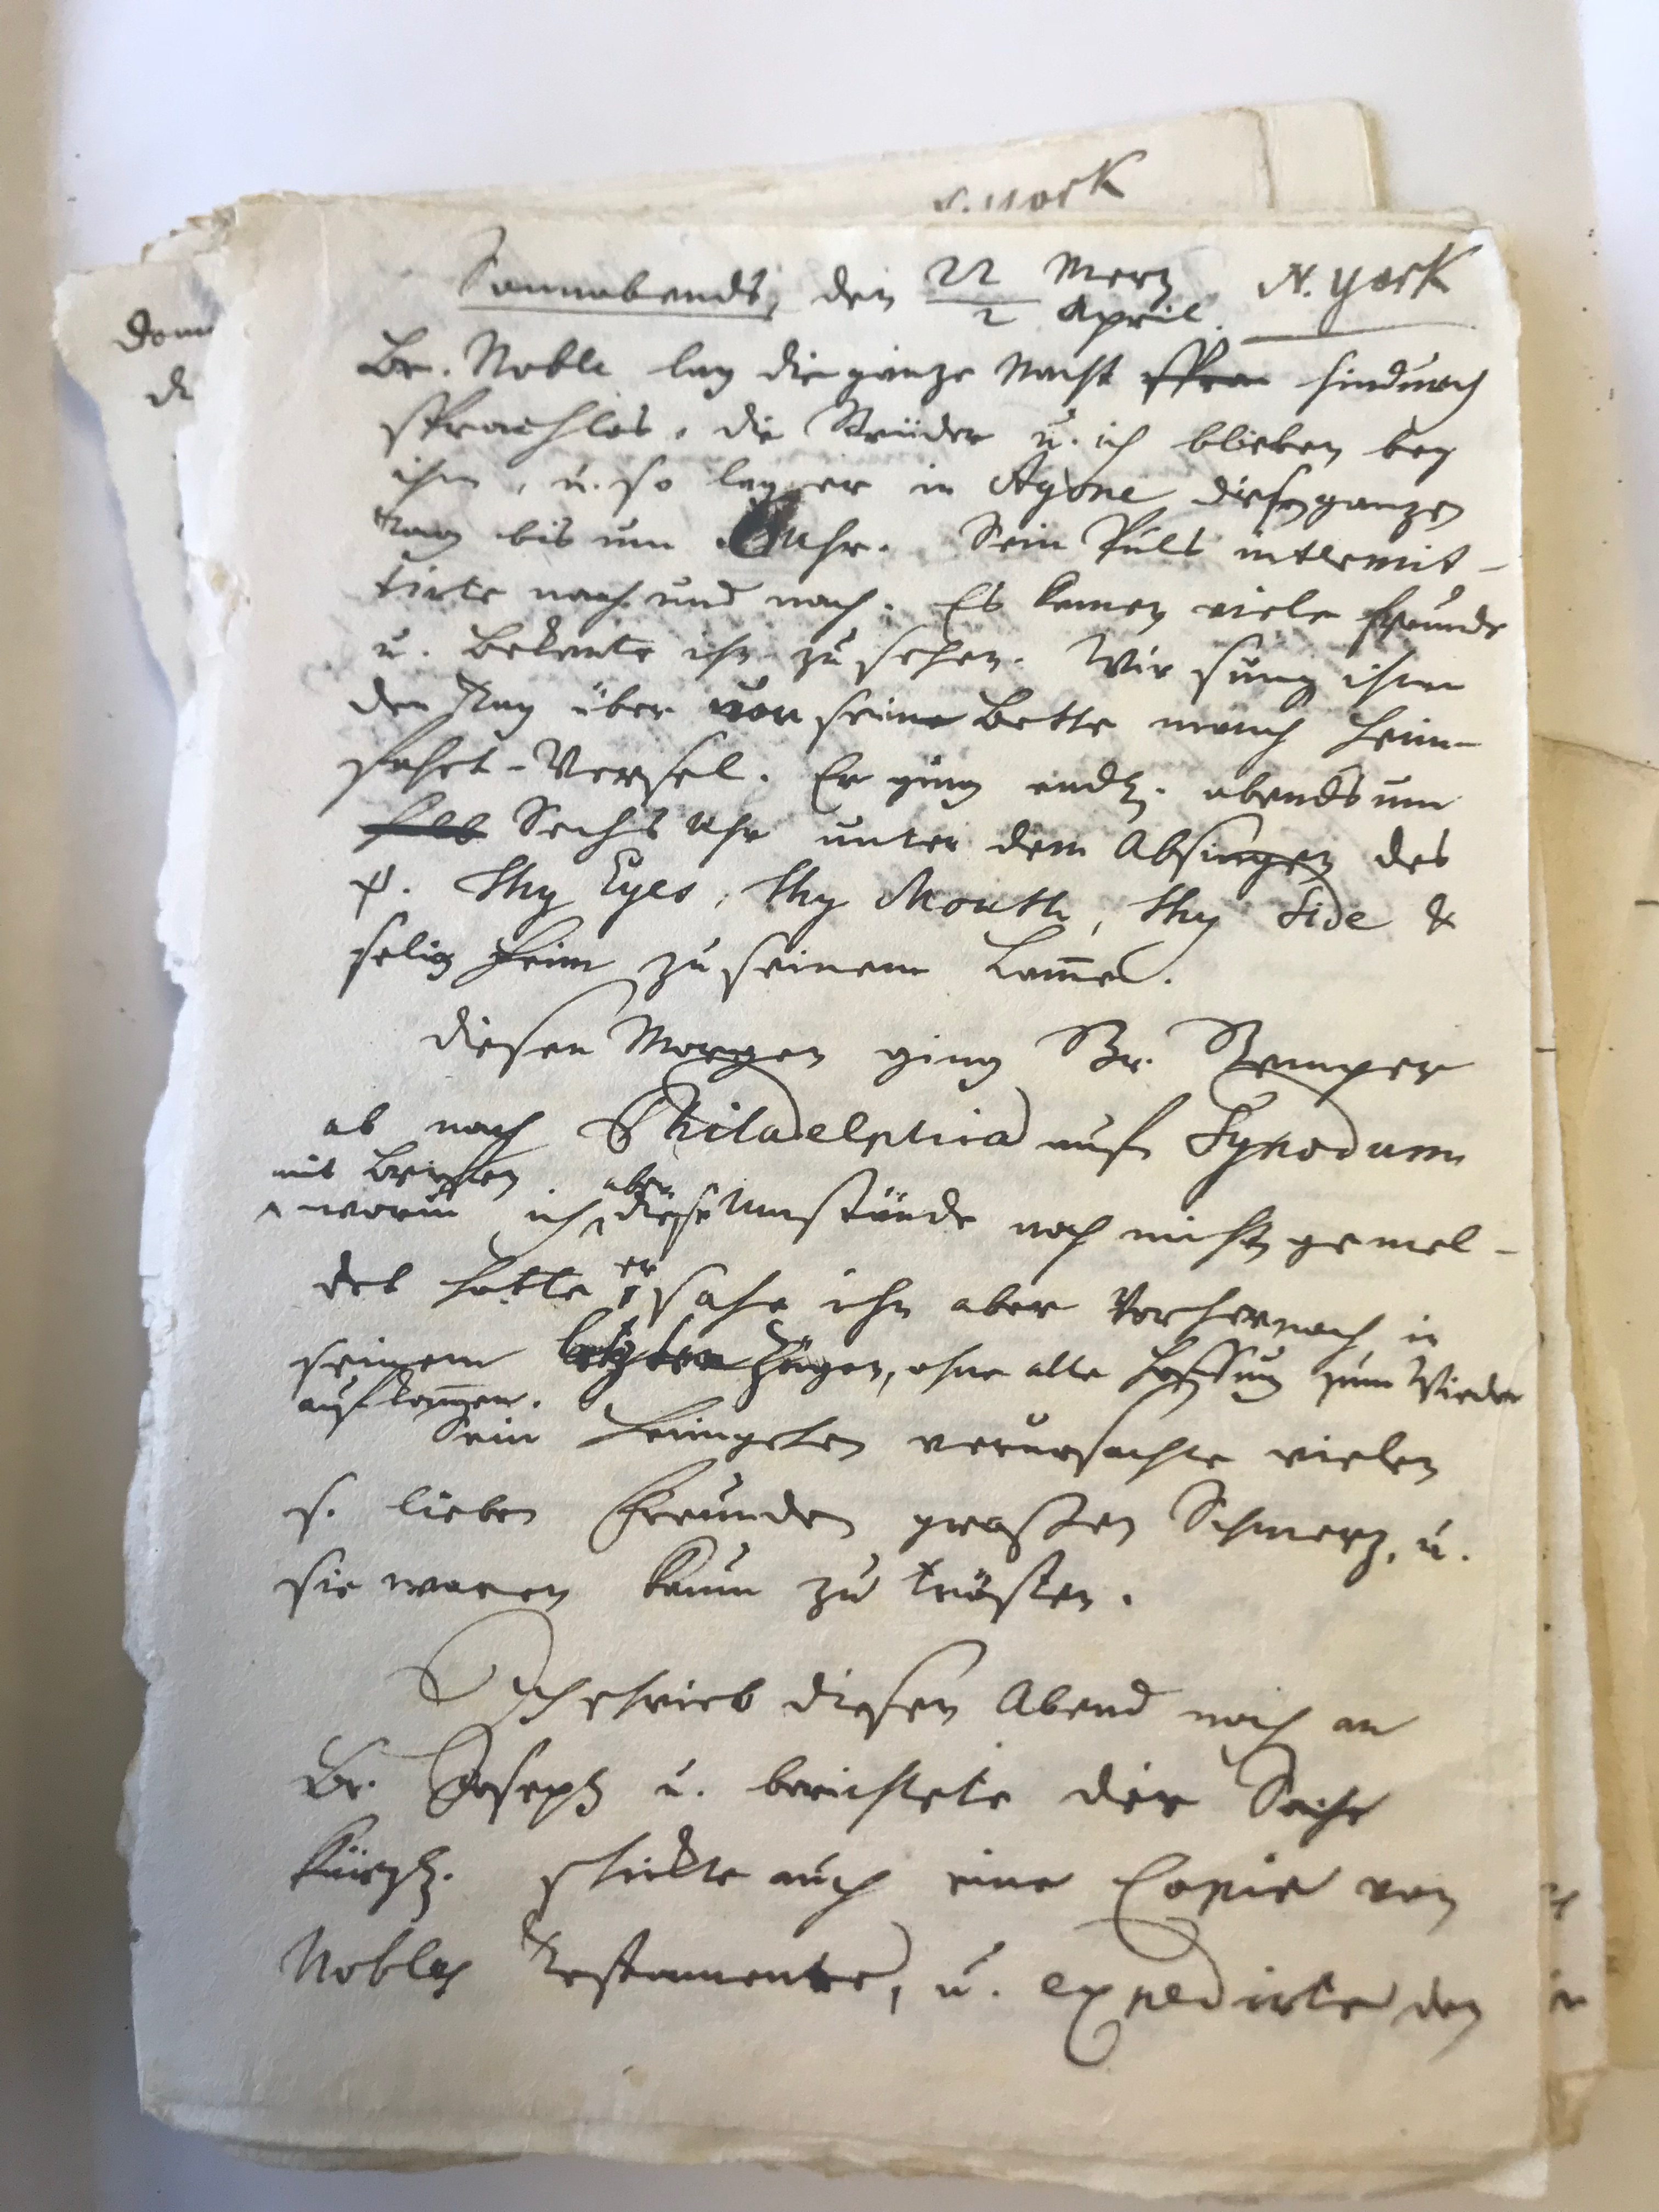 N. York
Sonnabends, den 22 Mertz N. York
2 April.
Br. Noble lag die gantze Nacht hindurch
sprachlos, die Brüder u. ich blieben bey
ihm, u. so lag er in Agone diesen gantzen
Tag bis um 6 Uhr. Sein Puls intermit-
tirte nach und nach. Es kamen viele Freunde
u. Bekante ihn zu sehen. Wir sung ihm
den Tag über vor seine Bette manch Heim-
fahrt-Versel. Er ging endl. abends um
halb Sechs Uhr unter dem Absingen des
V. Thy Eyes, thy Mouth, thy Side &
selig heim zu seinem Lamme.
Diesen Morgen ging Br.
ab nach Philadelphia aufn Synodum
mit Briefen, aber
worin ich diese Umstände noch nicht gemel-
det hatte er sahe ihn aber vorhernach in
seinem letzten Zügen, ohne alle Hoffnung zum Wieder
aufkommen.
Sein Heimgehen verursachte vielen
s. lieben Freunden grossen Schmerz, u.
sie waren kaum zu trösten.
Ich schrieb diesen Abend noch an
Br. Joseph u. berichtete die Sache
kürtzl. schickte auch eine Copie von
Nobles Testamente, u. expedirte den